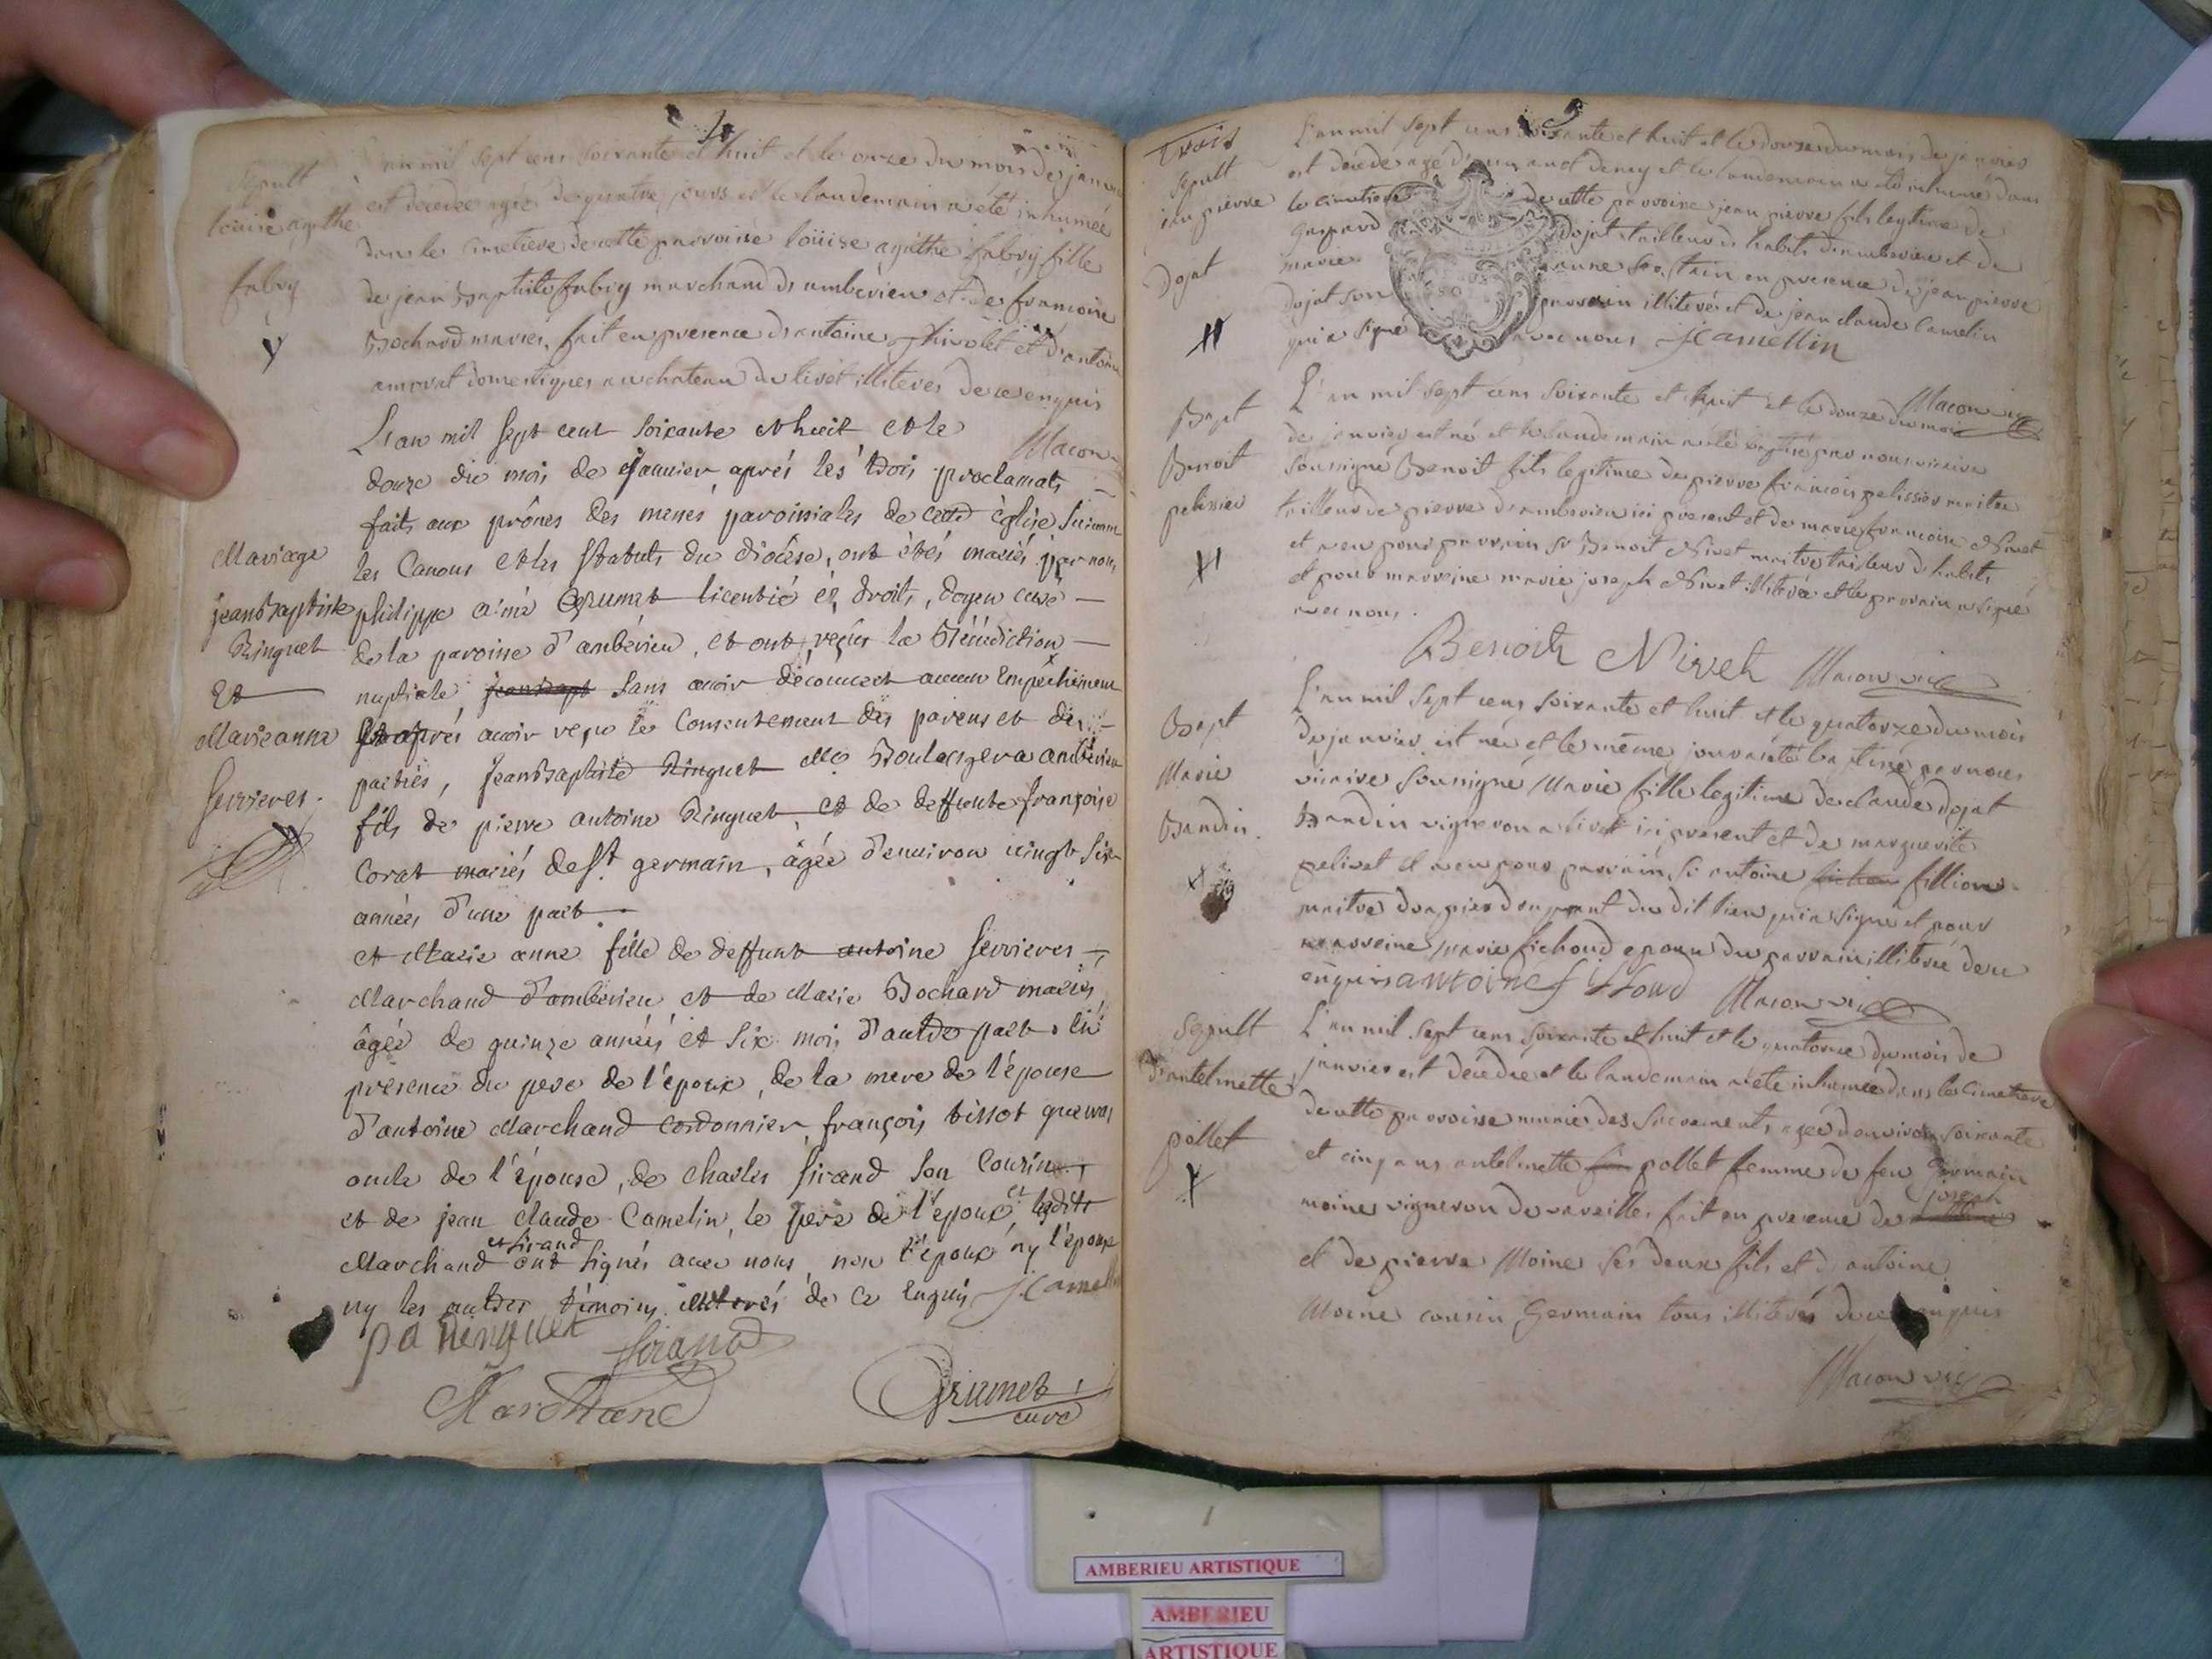 Sepult
louise agathe
fabry
L'an mil sept cens soixante et huit et le onze du mois de janvier
est decedée agée de quatre jours et le landemain a été inhumée
dans le cimetiere de cette parroisse loüise agathe fabry fille
de jean Baptiste fabry marchand d'amberieu et de francoise
Bochard mariés, fait en presence d'antoine et d'antoine
domestiques au chateau du tiret illiterés de ce enquis
Macon
Mariage
jean Baptiste
Ringuet
Et
Marie anne
Servieres.
L'an mil sept cent soixante et huit et le
douze du mois de janvier, aprés les trois proclamats
faits aux prônes des messes paroissiales de cette église suivant
les Canons et les statuts du diocèse, ont étés mariés par nous
philippe aimé Grumet licentié és droits, doyen curé
de la paroisse d'ambérieu, et ont reçus la Bénédiction
nuptiale, jean Bapt sans avoir découvert aucun Empêchement
Et aprés avoir reçu le Consentement des parens et des
parties, jean Baptiste Ringuet Me Boulanger a ambérieu
fils de pierre antoine Ringuet, et de deffunte françoise
Corat mariés de St. germain, âgé d'environ vingt six
années d'une part.
et Marie anne fille de deffunt antoine Servieres
Marchand d'amberieu et de Marie Bochard mariés,
âgée de quinze années et six mois d'autre part. En
présence du pere de l'époux, de la mere de l'épouse
d'antoine Marchand Cordonnier, françois tissot
oncle de l'épouse, de Charles sirand son Cousin,
et de jean claude Camelin, le pere de l'époux, et lesdits
Marchand et sirand ont signés avec nous, non l'époux ny l'épouse
ny les autres témoins illiterés de ce Enquis J Camellin
p a Ringuet Sirand
Marchand Grumet curé
Trois
Sepult
jean pierre
Dojat
L'an mil sept cens soixante et huit et le douze du mois de janvier
est décédé agé d'un an et demy et le landemain a été inhumé dans
le cimetiere de cette parroisse jean pierre fils legitime de
Gaspard Dojat tailleur d'habits d'amberieu et de
marie anne en presence de jean pierre
dojat son parrain illiteré et de jean claude Camelin
qui a signé avec nous J Camellin
Macon vic
Bapt
Benoit
pelissier
L'an mil sept cens soixante et huit et le douze du mois
de janvier est né et le landemain a été baptisé par nous vicaire
soussigné Benoit fils legitime de pierre francois pelissier maitre
tailleur de pierre d'amberieu ici present et de marie francoise Nivet
et a eu pour parrain Sr Benoit Nivet maitre tailleur d'habits
et pour marreine marie joseph Nivet illiterée et le parrain a signé
avec nous.
Benoit Nivet Macon vic
Bapt
Marie
Bandin.
L'an mil sept cens soixante et huit et le quatorze du mois
de janvier est née et le même jour a été baptisée par nous
vicaire soussigné Marie fille legitime de claude dojat
Bandin vigneron a tiret ici present et de marguerite
pelivet et a eu pour parrain Sr antoine fillion
maitre du dit lieu qui a signé et pour
marreine marie fichoud epouse du parrain illiterée de ce
enquis antoine Macon vic
Sepult
D'antelmette
pollet
L'an mil sept cens soixante et huit et le quatorze du mois de
janvier est décédée et le landemain a été inhumée dans le cimetiere
de cette parroisse munie des sacremens agée d'environ soixante
et cinq ans antelmette pollet femme de feu Germain
moine vigneron de vareilles fait en presence de joseph
et de pierre Moine ses deux fils et d'antoine
Moine cousin Germain tous illiterés de ce enquis
Macon vic
AMBERIEU ARTISTIQUE
AMBERIEU
ARTISTIQUE